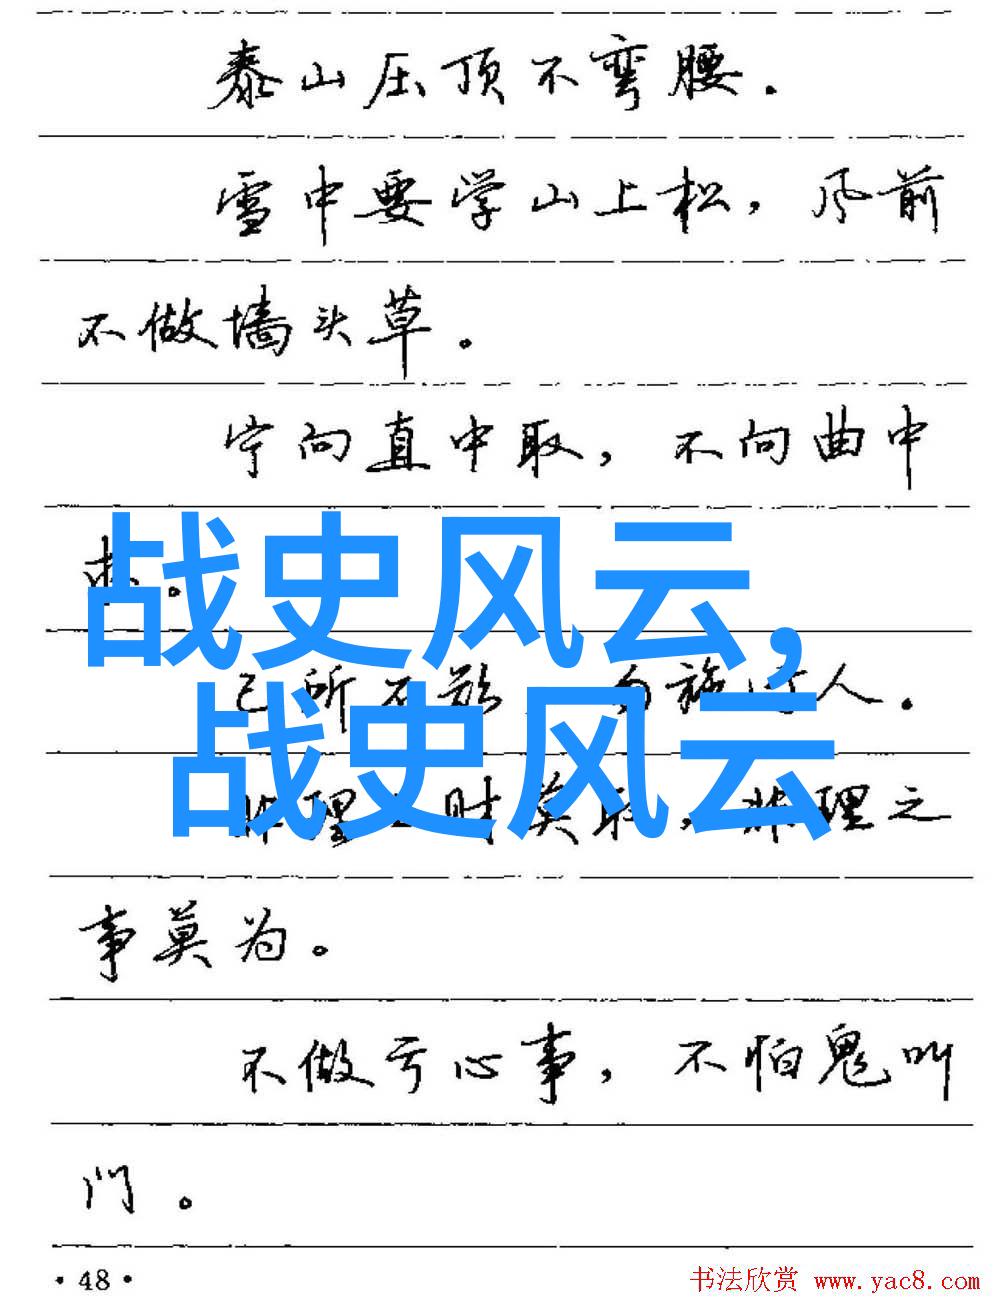 泰山压顶不弯腰.
雪中要学山上松，风前
不做墙头草。
宁向直中取，不向曲中
。
战史风云，
己所不欲 勿施于人。
战史风云
非理之财莫取，非理之
事莫为。
不做亏心事，不怕鬼叫
门。
·48·
书法欣赏 www.yac8.com